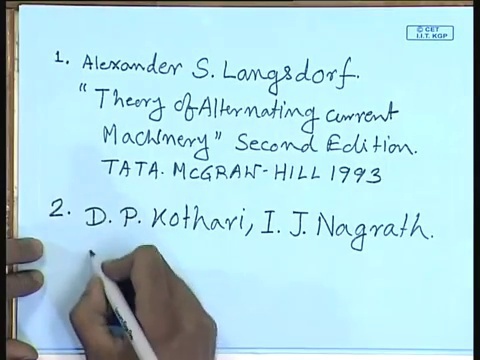 © CET
I.I.T. KGP
1. Alexander S. Langsdorf.
"Theory of Alternating current
Machinery" Second Edition.
TATA. McGRAW-HILL 1993
2. D. P. Kothari, I. J. Nagrath.